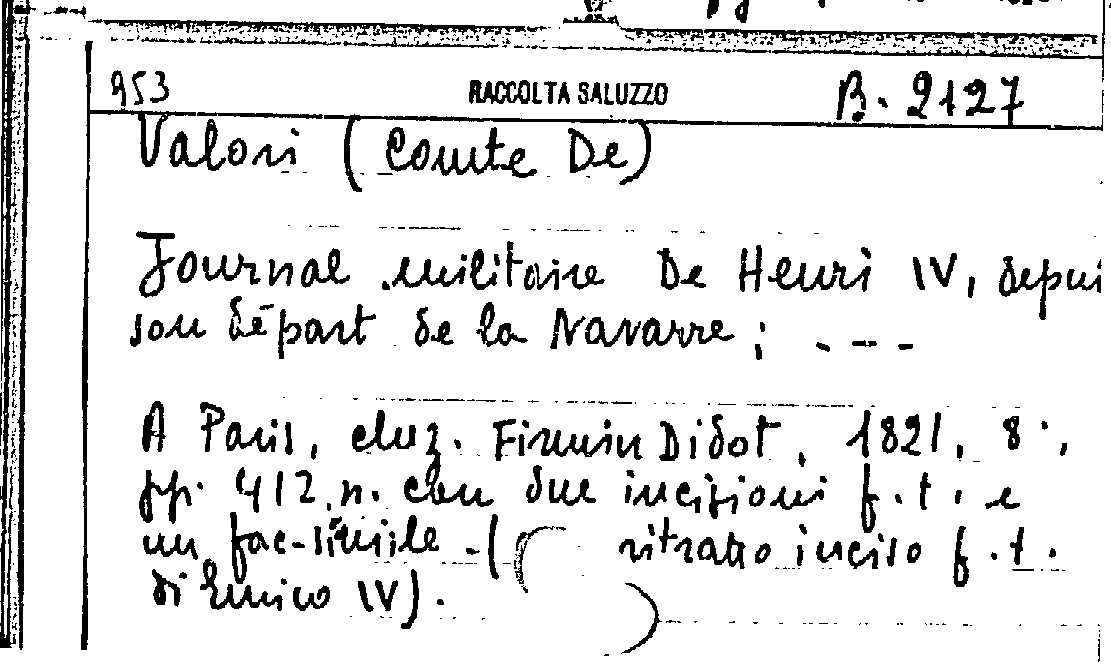 953 RACCOLTA SALUZZO B. 2127
Valori (Comte De)
Journal militaire De Henri IV, depui
son départ de la Navarre; ---
A Paris, chez. Firmin Didot, 1821, 8°,
pp. 412, n. con due incisioni f.t. e
un fac-simile - ( ritratto inciso f.t.
di Enrico IV).